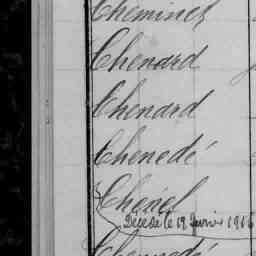 Cheminel
Chenard
Chenard
Chenedé
Chenel
Décédé le 19 Janvier 1916
Chenedé